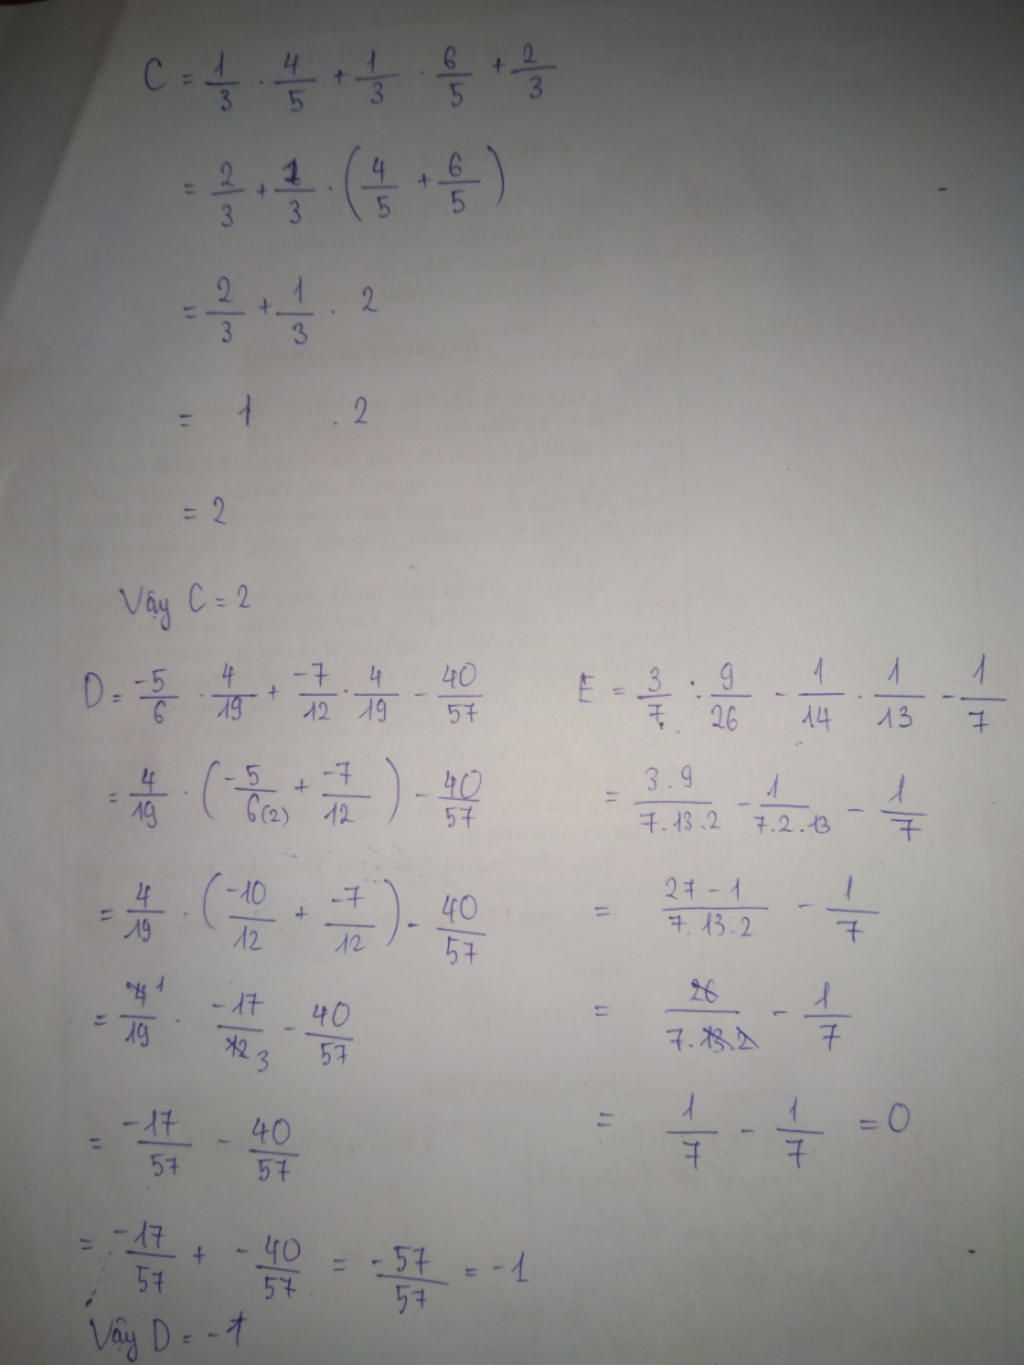 C = 1/3 . 4/5 + 1/3 . 6/5 + 2/3
= 2/3 + 1/3 . (4/5 + 6/5)
= 2/3 + 1/3 . 2
= 1 . 2
= 2
Vậy C = 2
D = -5/6 . 4/19 + -7/12 . 4/19 - 40/57
= 4/19 . (-5/6(2) + -7/12) - 40/57
= 4/19 . (-10/12 + -7/12) - 40/57
= 4 1/19 . -17/12 3 - 40/57
= -17/57 - 40/57
= -17/57 + -40/57 = -57/57 = -1
Vậy D = -1
E = 3/7 . 9/26 - 1/14 . 1/13 - 1/7
= 3.9/7.13.2 - 1/7.2.13 - 1/7
= 27-1/7.13.2 - 1/7
= 26/7.13.2 - 1/7
= 1/7 - 1/7 = 0